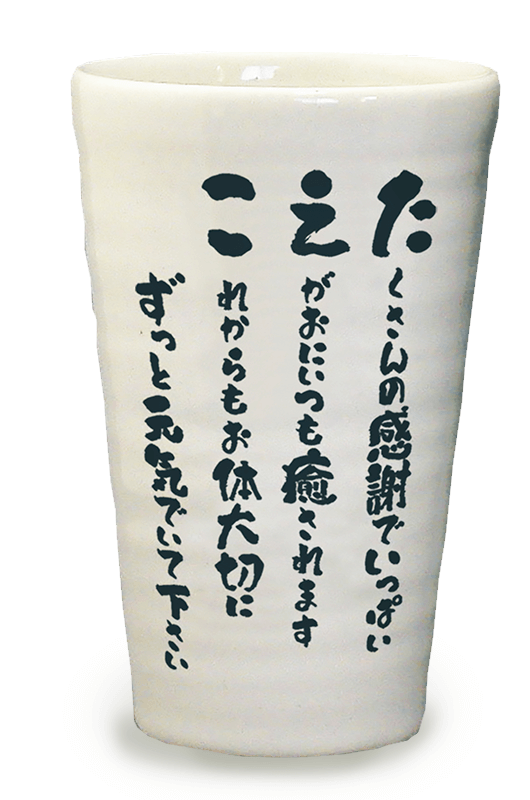 たくさんの感謝でいっぱい
えがおにいつも癒されます
これからもお体大切に
ずっと元気でいて下さい